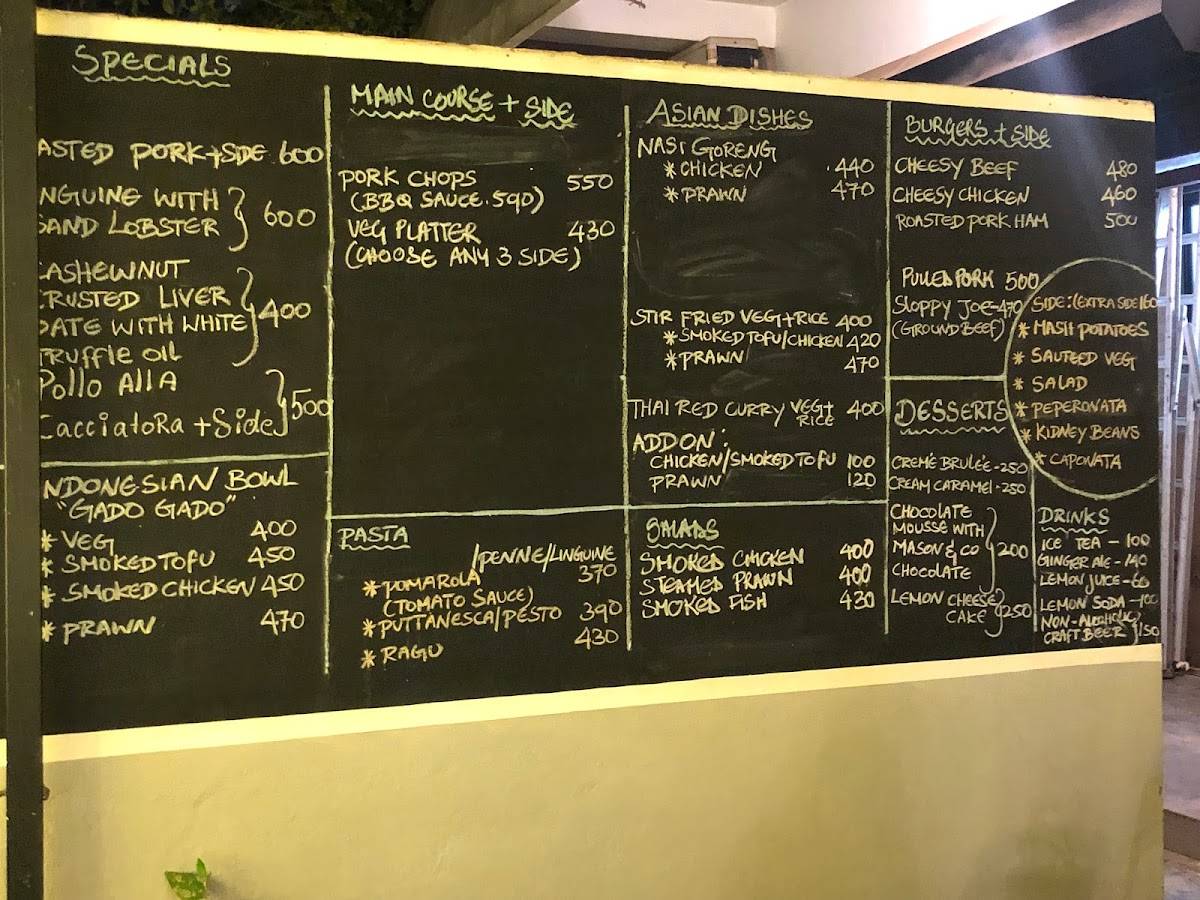 SPECIALS
ASTED PORK + SIDE 600
NGUINE WITH
SAND LOBSTER } 600
CASHEWNUT
CRUSTED LIVER
PATE WITH WHITE } 400
TRUFFLE OIL
Pollo AllA
CacciatoRa + Side } 500
NDONESIAN BOWL
"GADO GADO"
* VEG 400
* SMOKED TOFU 450
* SMOKED CHICKEN 450
* PRAWN 470
MAIN COURSE + SIDE
PORK CHOPS 550
(BBQ SAUCE. 590)
VEG PLATTER 430
(CHOOSE ANY 3 SIDE)
PASTA
/PENNE/LINGUINE
* POMAROLA 370
(TOMATO SAUCE)
* PUTTANESCA/PESTO 390
* RAGU 430
ASIAN DISHES
NASI GORENG
* CHICKEN 440
* PRAWN 470
STIR FRIED VEG + RICE 400
* SMOKED TOFU/CHICKEN 420
* PRAWN 470
THAI RED CURRY VEG + RICE 400
ADD ON:
CHICKEN/SMOKED TOFU 100
PRAWN 120
SALADS
SMOKED CHICKEN 400
STEAMED PRAWN 400
SMOKED FISH 430
BURGERS + SIDE
CHEESY BEEF 480
CHEESY CHICKEN 460
ROASTED PORK HAM 500
PULLED PORK 500
SLOPPY JOE - 470
(GROUND BEEF)
SIDE: (EXTRA SIDE 160
* MASH POTATOES
* SAUTEED VEG
* SALAD
* PEPERONATA
* KIDNEY BEANS
* CAPONATA
DESSERTS
CREMÉ BRULEÉ - 250
CREAM CARAMEL - 250
CHOCOLATE
MOUSSE WITH
MASON & CO } 200
CHOCOLATE
LEMON CHEESE
CAKE } 250
DRINKS
ICE TEA - 100
GINGER ALE - 140
LEMON JUICE - 60
LEMON SODA - 100
NON-ALCOHOLIC
CRAFT BEER } 150